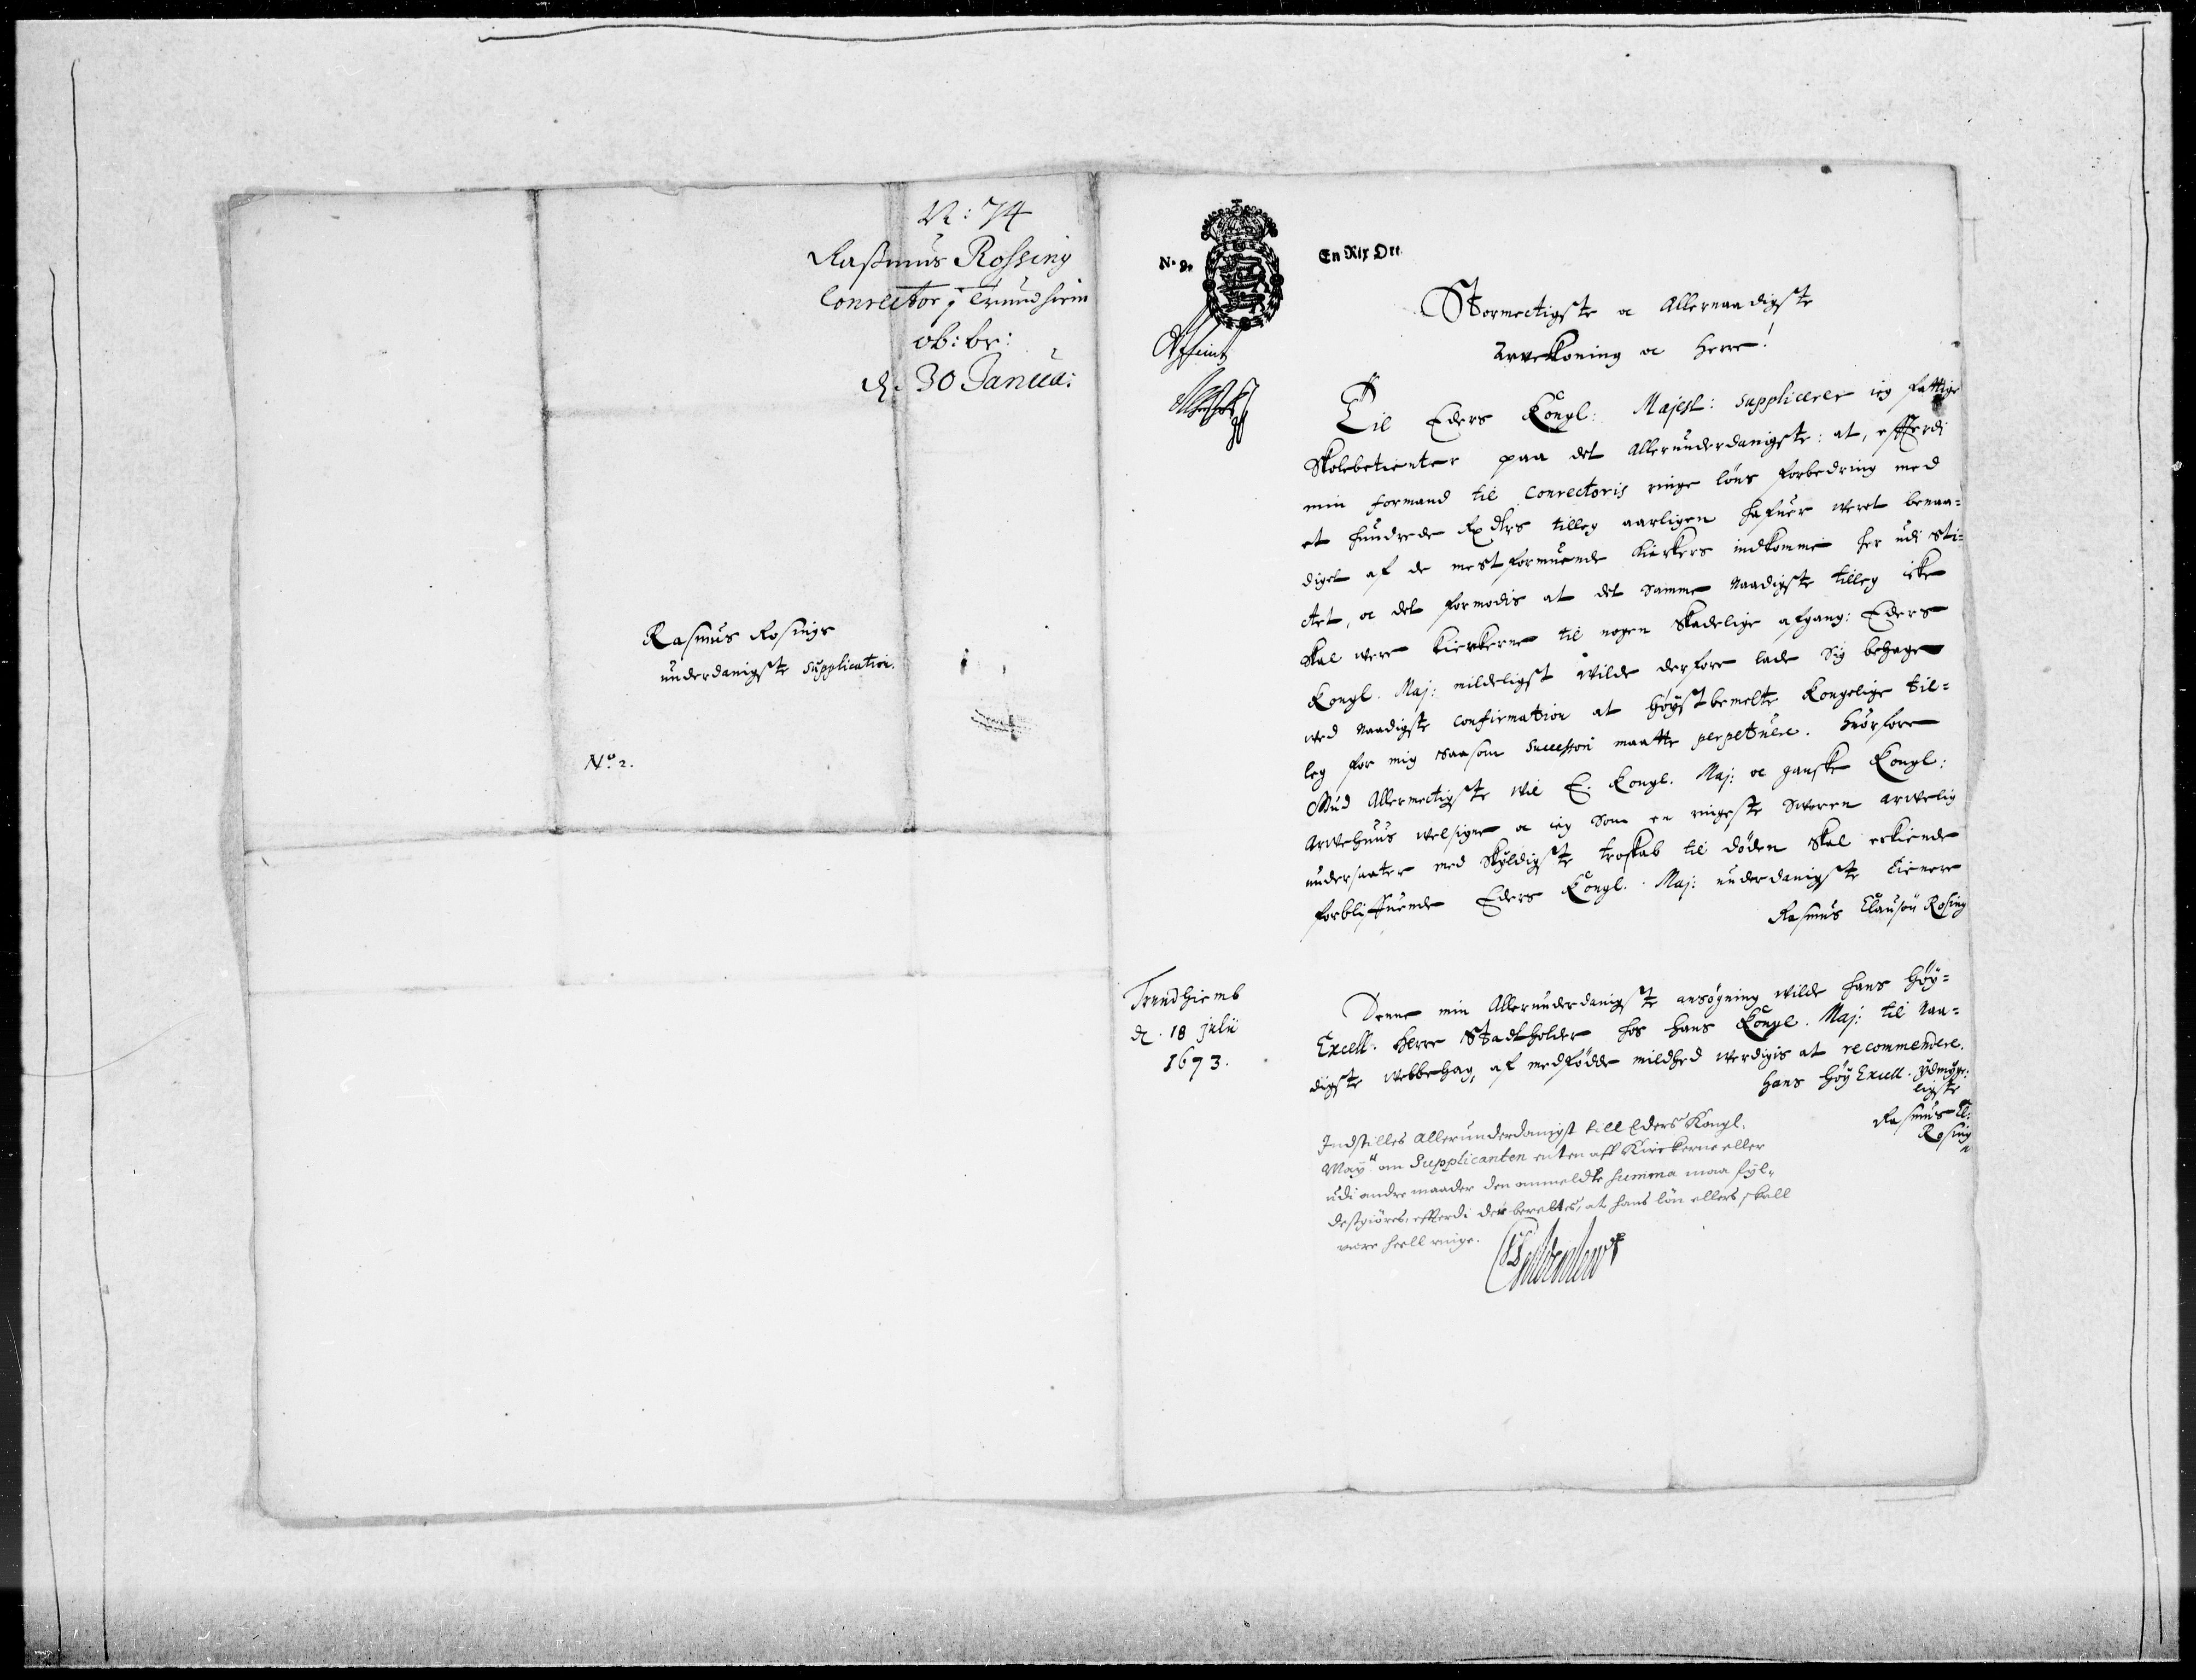 N: 74
Rassmus Rossing
Conrector j Trundhiem
ob: br:
d. 30 Janua:
Rasmus Rosings
underdanigste Supplication.
No. 2.
No 9.
En Rix Ort.
Stormectigste oc Allernaadigste
Arvekoning oc Herre!
Til Eders Kongl: Majest: supplicerer ieg fattige
Skolebetienter paa det Allerunderdanigste: at, efftterdi
min formand til Conrectoris ringe löns forbedring med
et hundrede Rx drs tilleg aarligen hafuer veret benaa=
diget af de mest formuende Kirkers indkomme her udi Sti=
ctet, oc det formodis at det samme Naadigste tilleg icke
skal vere Kierkerne til nogen skadelige afgang: Eders
Kongl. Maj: mildeligst wilde derfore lade sig behage
ved Naadigste Confirmation at höystbemelte Kongelige til=
leg for mig saasom Successori maatte perpetuere. Hvorfore
Gud Allermectigste vil E. Kongl. Maj: oc ganske Kongl:
Arvehuus velsigne oc ieg som en ringeste Sveren arvelig
undersaater med skyldigste troskab til döden skal erkiende
forbliffuende Eders Kongl. Maj: underdanigste tienere
Rasmus Clausön Rosing
Trundhiemb
d. 18 julii
1673.
Denne min Allerunderdanigste ansögning wilde Hans Höy=
Excell. Herre Stadtholder hos Hans Kongl. Maj: til Naa=
digste velbehag, af medfödde mildhed verdigis at recommendere.
Hans Höy Excell. ydmyge:
ligste
Rasmus Cl:
Rosing
Indstilles Allerunderdanigst till Eders Kongl.
May.tt om Supplicanten enten aff Kirckerne eller
udi andre maader den anmeldte summa maa fyl=
destgiöres, effterdi der berettes, at hans lön ellers skall
vere heell ringe.
Gyldenlew